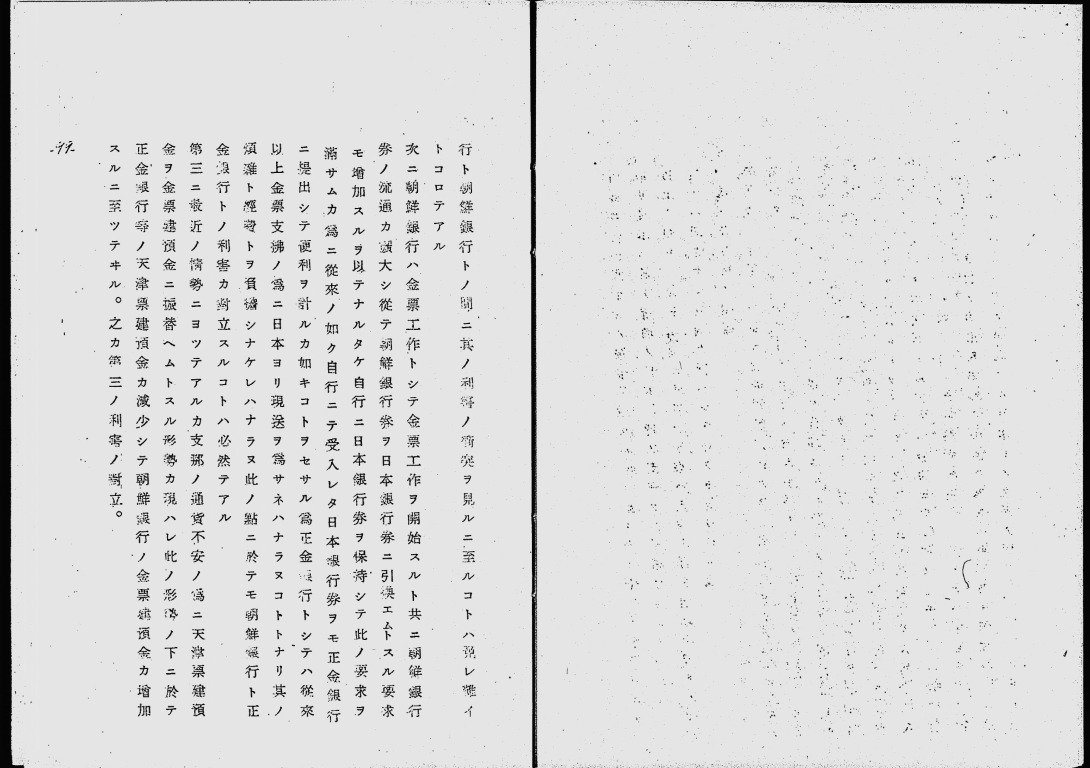 行ト朝鮮銀行トノ間ニ其ノ利害ノ衝突ヲ見ルニ至ルコトハ免レ難イ
トコロテアル
次ニ朝鮮銀行ハ金票工作トシテ金票工作ヲ開始スルト共ニ朝鮮銀行
券ノ流通カ拡大シ從テ朝鮮銀行券ヲ日本銀行券ニ引換エムトスル要求
モ增加スルヲ以テナルタケ自行ニ日本銀行券ヲ保持シテ此ノ要求ヲ
滿サムカ爲ニ從來ノ如ク自行ニテ受入レタ日本銀行券ヲモ正金銀行
ニ提出シテ便利ヲ計ルカ如キコトヲセサル爲正金銀行トシテハ從來
以上金票支拂ノ爲ニ日本ヨリ現送ヲ爲サネハナラヌコトトナリ其ノ
煩雜ト經費トヲ負擔シナケレハナラヌ此ノ點ニ於テモ朝鮮銀行ト正
金銀行トノ利害カ對立スルコトハ必然テアル
第三ニ最近ノ情勢ニヨツテアルカ支那ノ通貨不安ノ爲ニ天津票建預
金ヲ金票建預金ニ振替ヘムトスル形勢カ現ハレ此ノ形勢ノ下ニ於テ
正金銀行等ノ天津票建預金カ減少シテ朝鮮銀行ノ金票建預金カ增加
スルニ至ツテヰル。之カ第三ノ利害ノ對立。